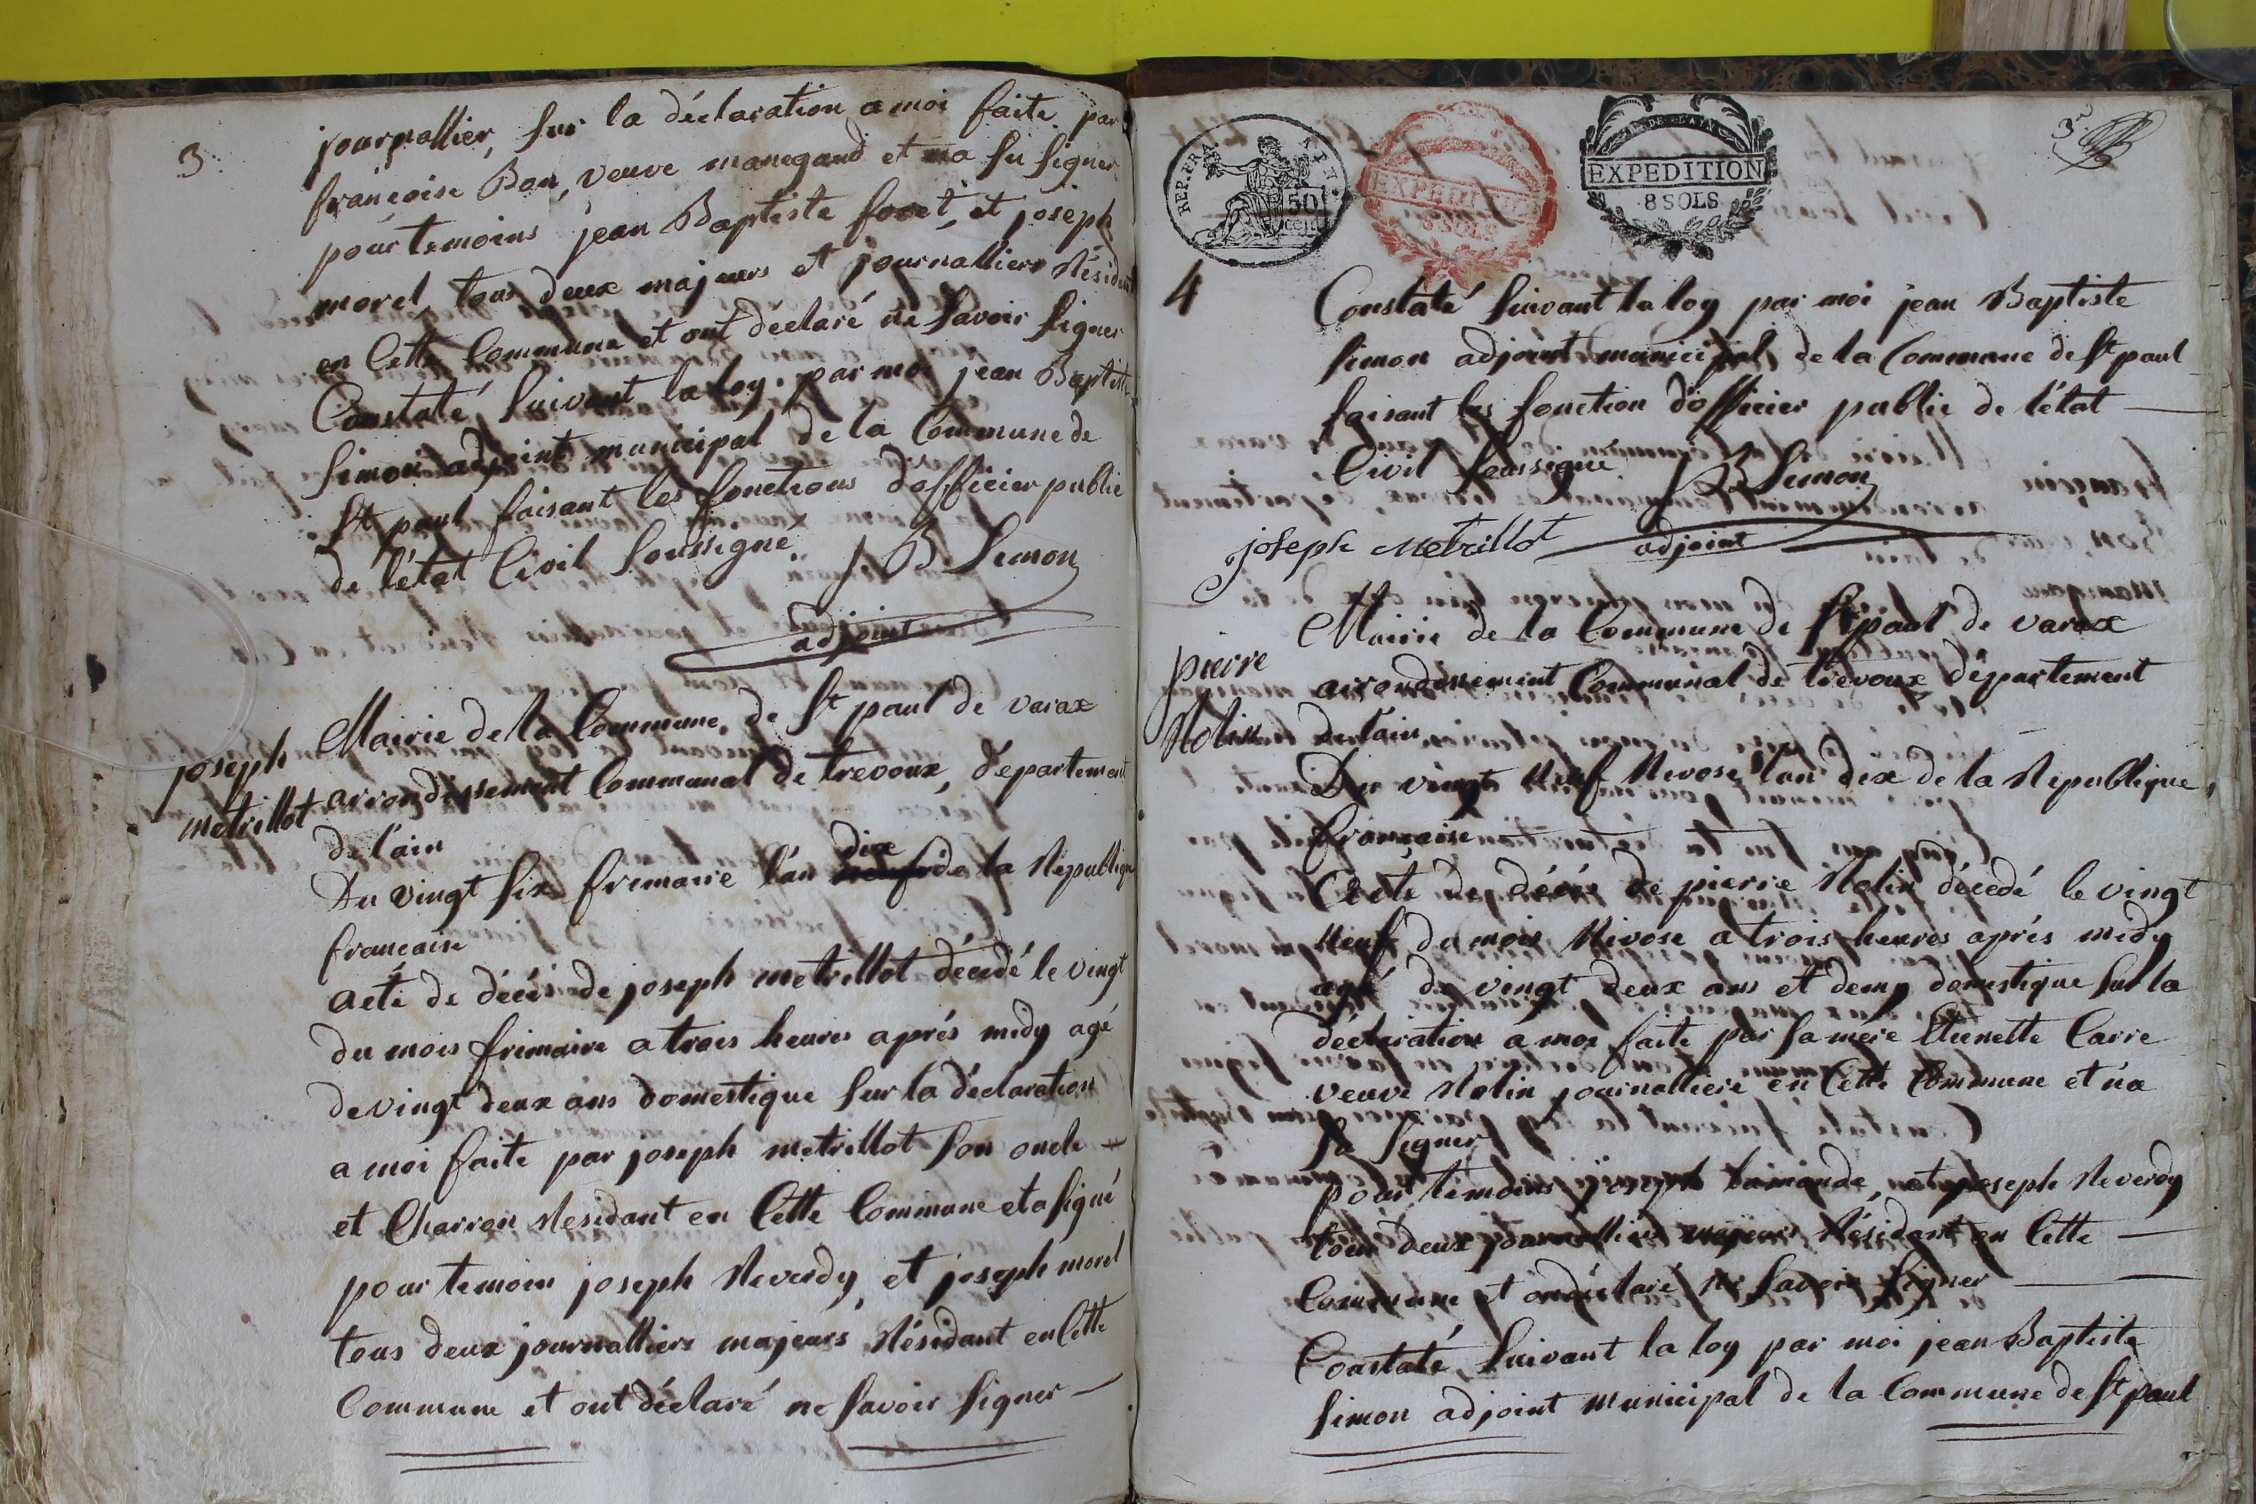 3
journallier, sur la déclaration a moi faite par
françoise Bon, veuve manegand et n'a su signer
pour temoins jean Baptiste foret, et joseph
morel, tous deux majeurs et journalliers Résidant
en Cette Commune et ont déclaré ne savoir signer
Constaté suivant la loy. par moi jean Baptiste
simon adjoint municipal de la Commune de
St paul faisant les fonctions d'officier public
de l'état Civil soussigné. JB Simon
adjoint
joseph
metrillot
Mairie de la Commune de St paul de varax
arrondissement Communal de trevoux, département
de l'ain
Du vingt six frimaire l'an dix de la République
francaise
acte de décés de joseph metrillot décédé le vingt
du mois frimaire a trois heures aprés midy agé
de vingt deux ans domestique sur la déclaration
a moi faite par joseph metrillot son oncle
et Charron Residant en Cette Commune et a signé
pour temoin joseph Reverdy et joseph morel
tous deux journalliers majeurs Résidant en Cette
Commune et ont déclaré ne savoir signer —
REP. FRA.
50
cent
EXPEDITION
8 SOLS
DE L'AIN
EXPEDITION
8 SOLS
3
4
Constaté suivant la loy par moi jean Baptiste
simon adjoint municipal de la Commune de St paul
faisant les fonction d'officier public de l'état —
Civil soussigné JB Simon
joseph metrillot adjoint
pierre
Nolin
Mairie de la Commune de St paul de varax
arrondissement Communal de trévoux département
de l'ain
Du vingt Neuf Nivose l'an dix de la République
francaise
Acte de décés de pierre Nolin décédé le vingt
Neuf du mois Nivose a trois heures aprés midy
agé de vingt deux ans et demy domestique sur la
déclaration a moi faite par sa mere Etiennette Carre
veuve Nolin journalliere en Cette Commune et n'a
su signer
pour témoins joseph et joseph Reverdy
tous deux journalliers majeurs Résidant en Cette —
Commune et on déclaré ne savoir signer —
Constaté suivant la loy par moi jean Baptiste
simon adjoint municipal de la Commune de St paul